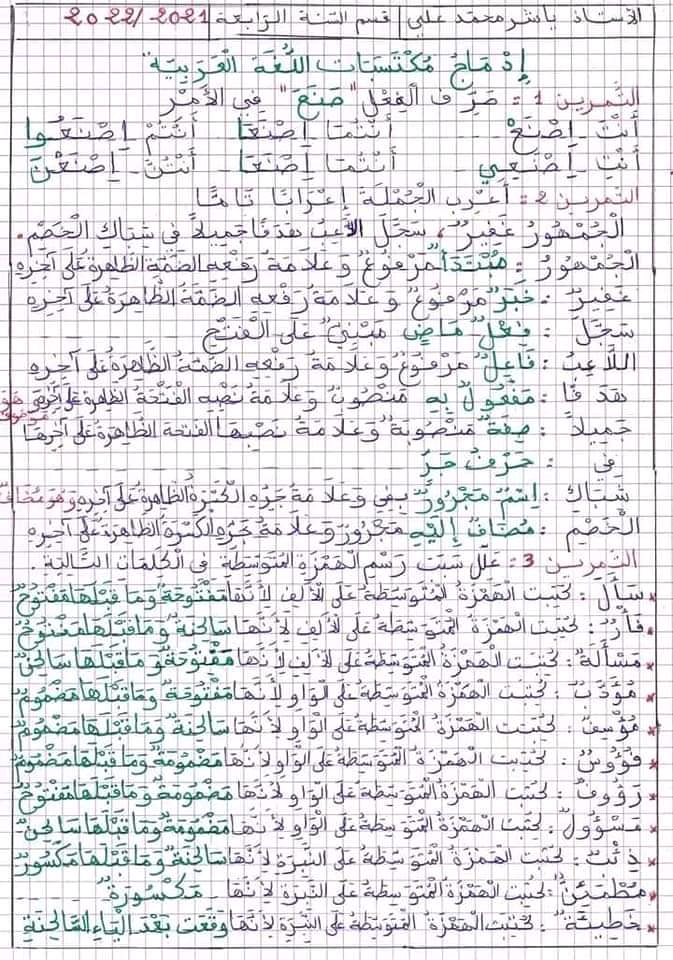 الأستاذ ياشر محمد علي | قسم السنة الرابعة | 2022/2021
إدماج مكتسبات اللغة العربية
التمرين 1: صرّف الفعل "صَنَعَ" في الأمر
أنتَ اِصْنَعْ أنتما اِصْنَعَا أنتم اِصْنَعُوا
أنتِ اِصْنَعِي أنتما اِصْنَعَا أنتنّ اِصْنَعْنَ
التمرين 2: أعرب الجملة إعرابا تامّا
الجمهورُ غفيرٌ، سجّل اللاعبُ هدفًا جميلاً في شباك الخصم.
الجمهورُ: مبتدأ مرفوع وعلامة رفعه الضمة الظاهرة على آخره
غفيرٌ: خبر مرفوع وعلامة رفعه الضمة الظاهرة على آخره
سجّلَ: فعل ماض مبنيّ على الفتح
اللاعبُ: فاعل مرفوع وعلامة رفعه الضمة الظاهرة على آخره
هدفًا: مفعول به منصوب وعلامة نصبه الفتحة الظاهرة على آخره وهو موصوف
جميلاً: صفة منصوبة وعلامة نصبها الفتحة الظاهرة على آخرها
في: حرف جر
شباكِ: اسم مجرور بفي وعلامة جره الكسرة الظاهرة على آخره وهو مضاف
الخصمِ: مضاف إليه مجرور وعلامة جره الكسرة الظاهرة على آخره
التمرين 3: علّل سبب رسم الهمزة المتوسطة في الكلمات التالية.
سَأَلَ: كتبت الهمزة المتوسطة على الألف لأنها مفتوحة وما قبلها مفتوح
فَأْرٌ: كتبت الهمزة المتوسطة على الألف لأنها ساكنة وما قبلها مفتوح
مَسْأَلَةٌ: كتبت الهمزة المتوسطة على الألف لأنها مفتوحة وما قبلها ساكن
مُؤَدَّبٌ: كتبت الهمزة المتوسطة على الواو لأنها مفتوحة وما قبلها مضموم
مُؤْسِفٌ: كتبت الهمزة المتوسطة على الواو لأنها ساكنة وما قبلها مضموم
فُؤُوسٌ: كتبت الهمزة المتوسطة على الواو لأنها مضمومة وما قبلها مضموم
رَؤُوفٌ: كتبت الهمزة المتوسطة على الواو لأنها مضمومة وما قبلها مفتوح
مَسْؤُولٌ: كتبت الهمزة المتوسطة على الواو لأنها مضمومة وما قبلها ساكن
ذِئْبٌ: كتبت الهمزة المتوسطة على النبرة لأنها ساكنة وما قبلها مكسور
مُطْمَئِنٌّ: كتبت الهمزة المتوسطة على النبرة لأنها مكسورة
خَطِيئَةٌ: كتبت الهمزة المتوسطة على النبرة لأنها وقعت بعد الياء الساكنة